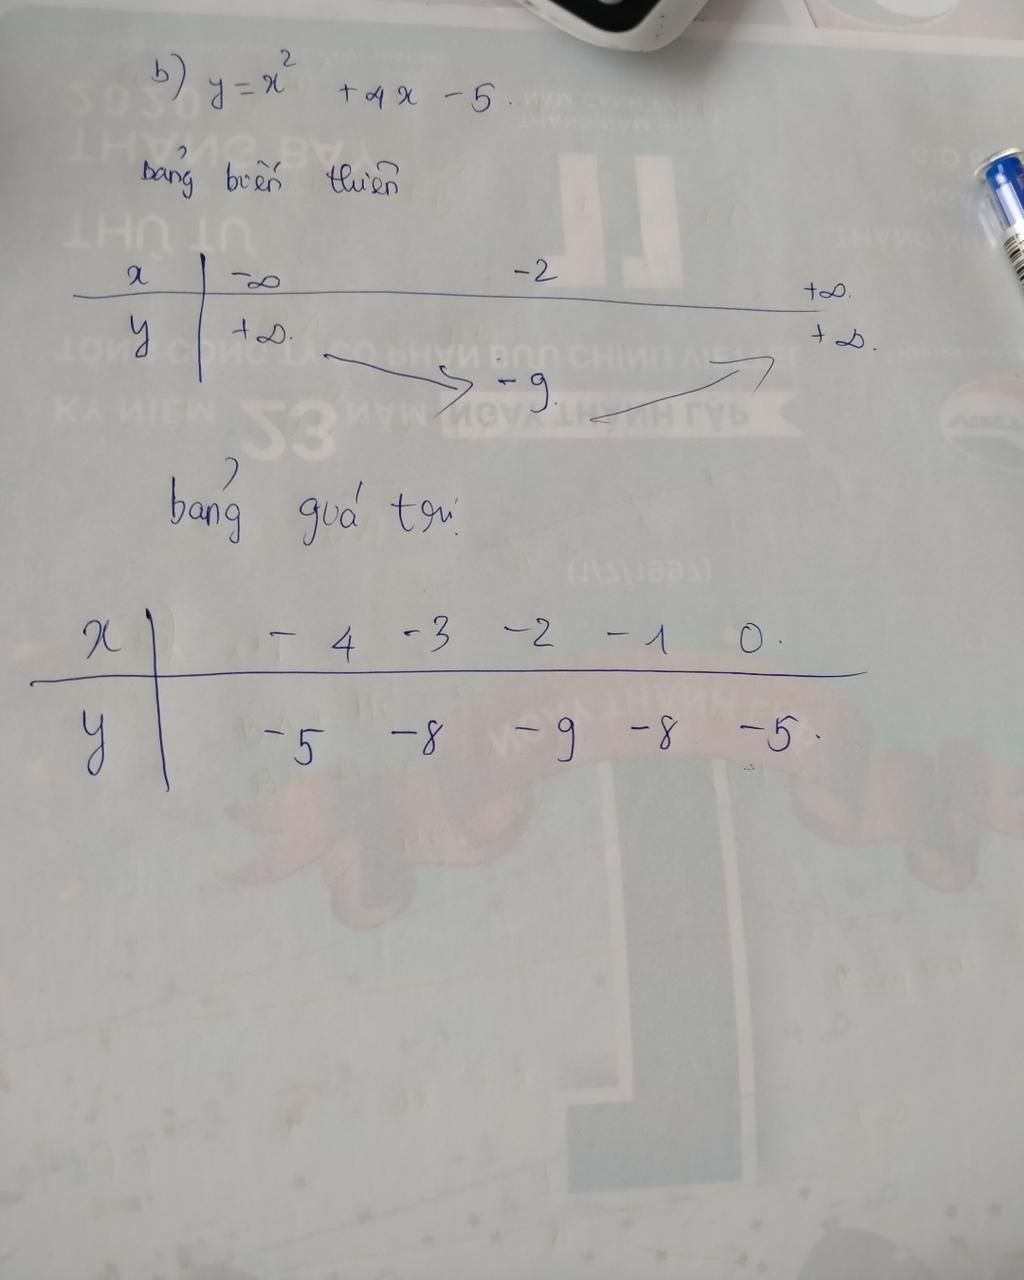 b) y = x² + 4x - 5.
bảng biến thiên
x | -∞ -2 +∞.
y | +∞. -9. +∞.
bảng giá trị
x | -4 -3 -2 -1 0.
y | -5 -8 -9 -8 -5.